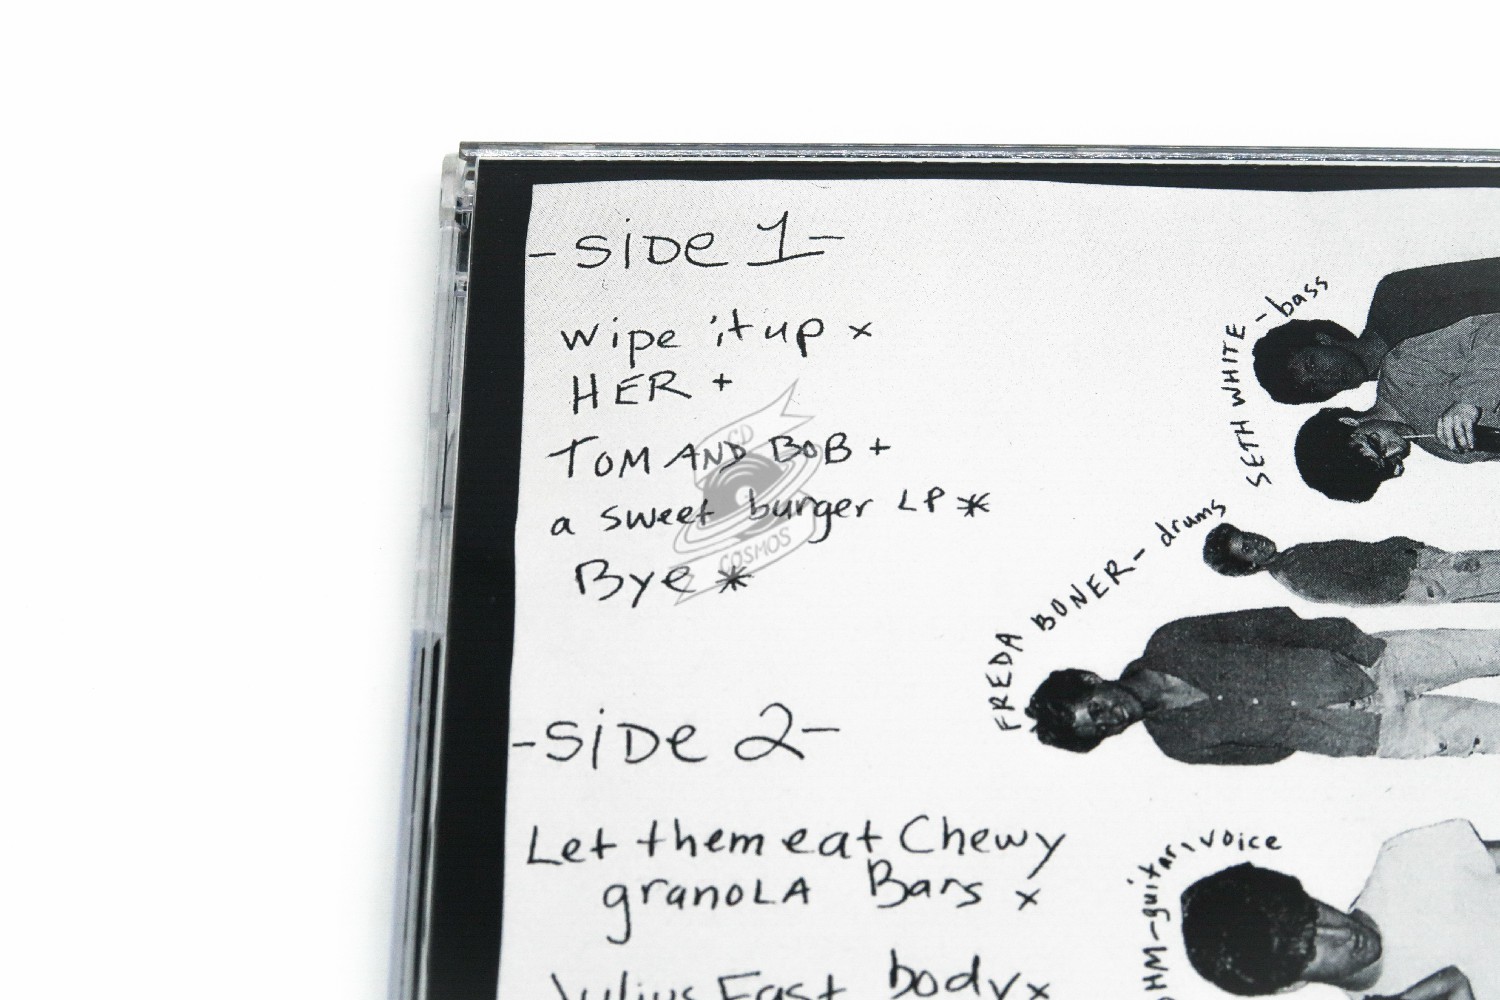 -SiDe 1-
wipe it up x
HER +
TOM AND BOB +
a sweet burger LP *
Bye *
CD
COSMOS
-SiDe 2-
Let them eat Chewy
granoLA Bars x
body x
SETH WHITE - bass
FREDA BONER - drums
HM - guitar, voice